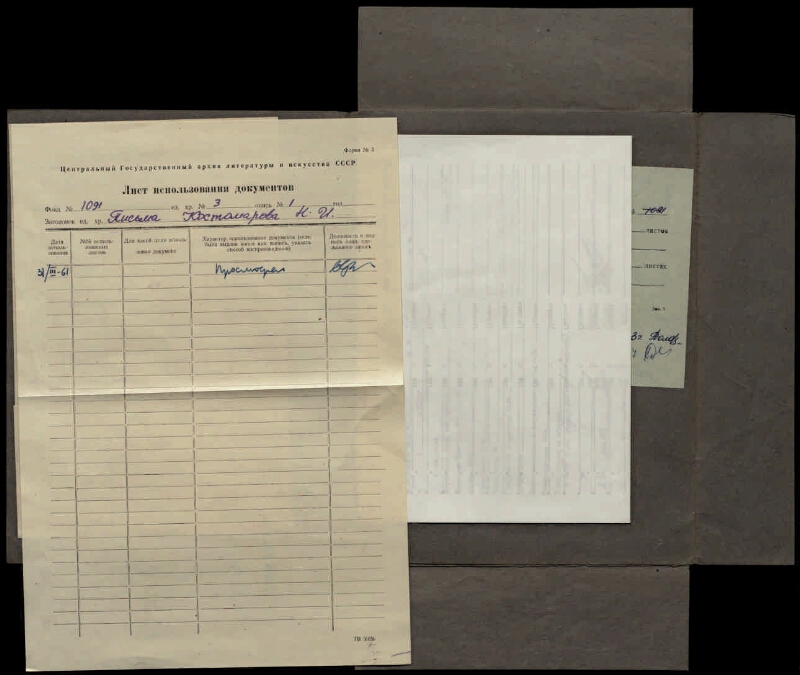 Форма № 3
Центральный Государственный архив литературы и искусства СССР
Лист использования документов
Фонд № 1091 ед. хр. № 3 опись № 1 год
Заголовок ед. хр. Письма Костомарова Н. И.
Дата использования
№№ использованных листов
Для какой цели использовано документ
Характер использования документа (если была выдана копия или выпись, указать способ воспроизведения)
Должность и подпись лица, сделавшего запись
31/III-61 Просмотрел
1091
листов
листах